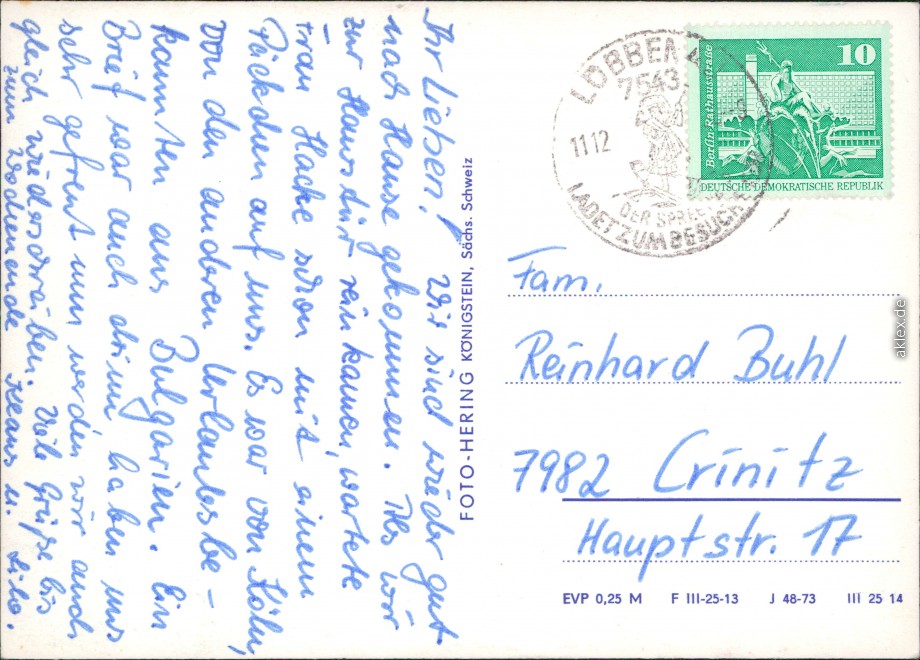 Ihr Lieben! Wir sind wieder gut
nach Hause gekommen. Als wir
zur Haustür rein kamen, wartete
Frau Hacke schon mit einem
Päckchen auf uns. Es war von Köln,
von den anderen Urlaubsbe-
kannten aus Bulgarien. Ein
Brief war auch drinn haben uns
sehr gefreut nun werden wir auch
gleich wiederschreiben. Viele Grüße bis
zum Wochenende Klaus u.
FOTO-HERING KÖNIGSTEIN, Sächs. Schweiz
LÜBBEN
7543
11.12
DER SPREE
LADET ZUM BESUCH EIN
10
Berlin-Rathausstraße
DEUTSCHE DEMOKRATISCHE REPUBLIK
Fam.
Reinhard Buhl
7982 Crinitz
Hauptstr. 17
EVP 0,25 M F III-25-13 J 48-73 III 25 14
aklex.de